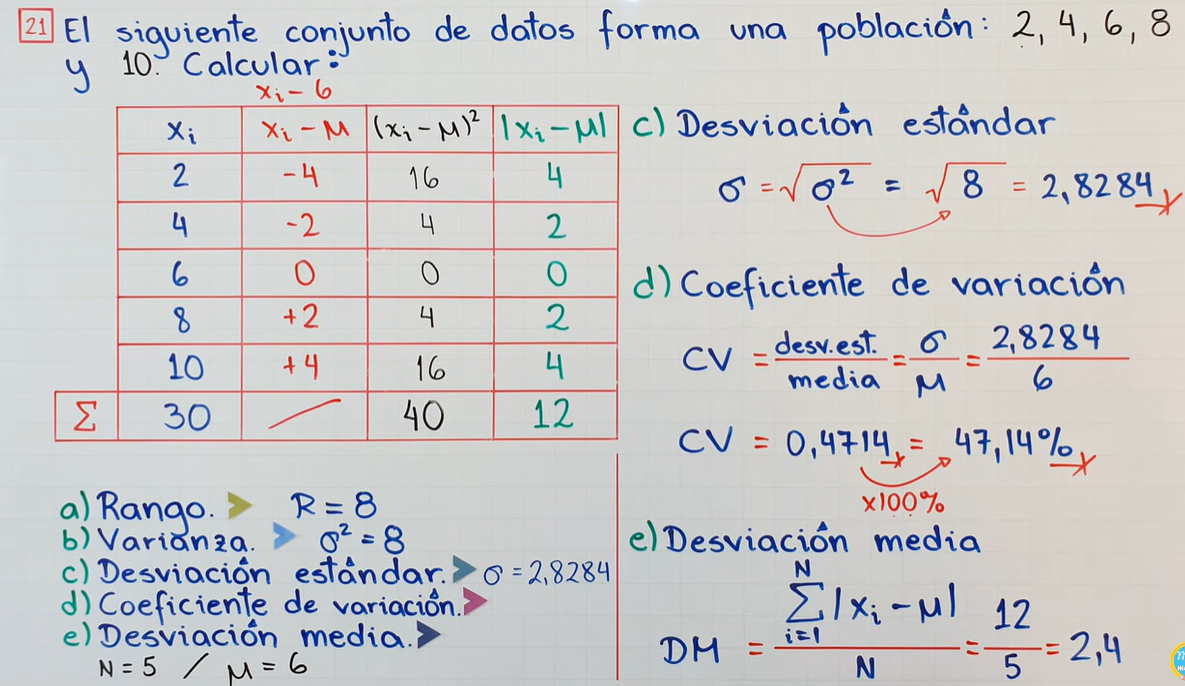 21 El siguiente conjunto de datos forma una población: 2, 4, 6, 8
y 10. Calcular:
xᵢ - 6
xᵢ | xᵢ - μ | (xᵢ - μ)² | |xᵢ - μ|
2 | -4 | 16 | 4
4 | -2 | 4 | 2
6 | 0 | 0 | 0
8 | +2 | 4 | 2
10 | +4 | 16 | 4
Σ | 30 | / | 40 | 12
a) Rango. R = 8
b) Varianza. σ² = 8
c) Desviación estándar. σ = 2,8284
d) Coeficiente de variación.
e) Desviación media.
N = 5 / μ = 6
c) Desviación estándar
σ = √σ² = √8 = 2,8284
d) Coeficiente de variación
CV = desv.est./media = σ/μ = 2,8284/6
CV = 0,4714 = 47,14%
x100%
e) Desviación media
DM = Σᵢ₌₁ᴺ |xᵢ - μ| / N = 12/5 = 2,4